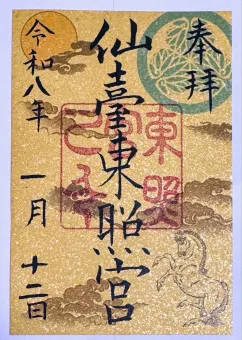 奉拝
仙臺東照宮
令和八年 一月 十二日
東照宮